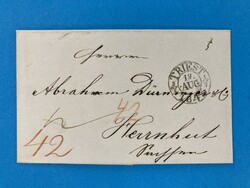 Herrn
TRIEST
19.
AUG
Abraham Dürninger & C
42
Herrnhut
42
Sachsen